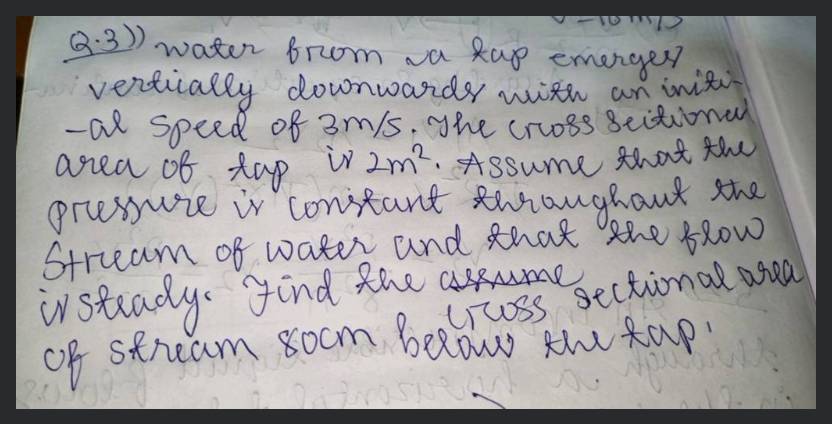 Q.3)) water from a tap emerges
vertically downwards with an initi-
-al speed of 3m/s. The cross sectional
area of tap is 2m². Assume that the
pressure is constant throughout the
stream of water and that the flow
is steady. Find the assume
cross sectional area
of stream 80cm below the tap.